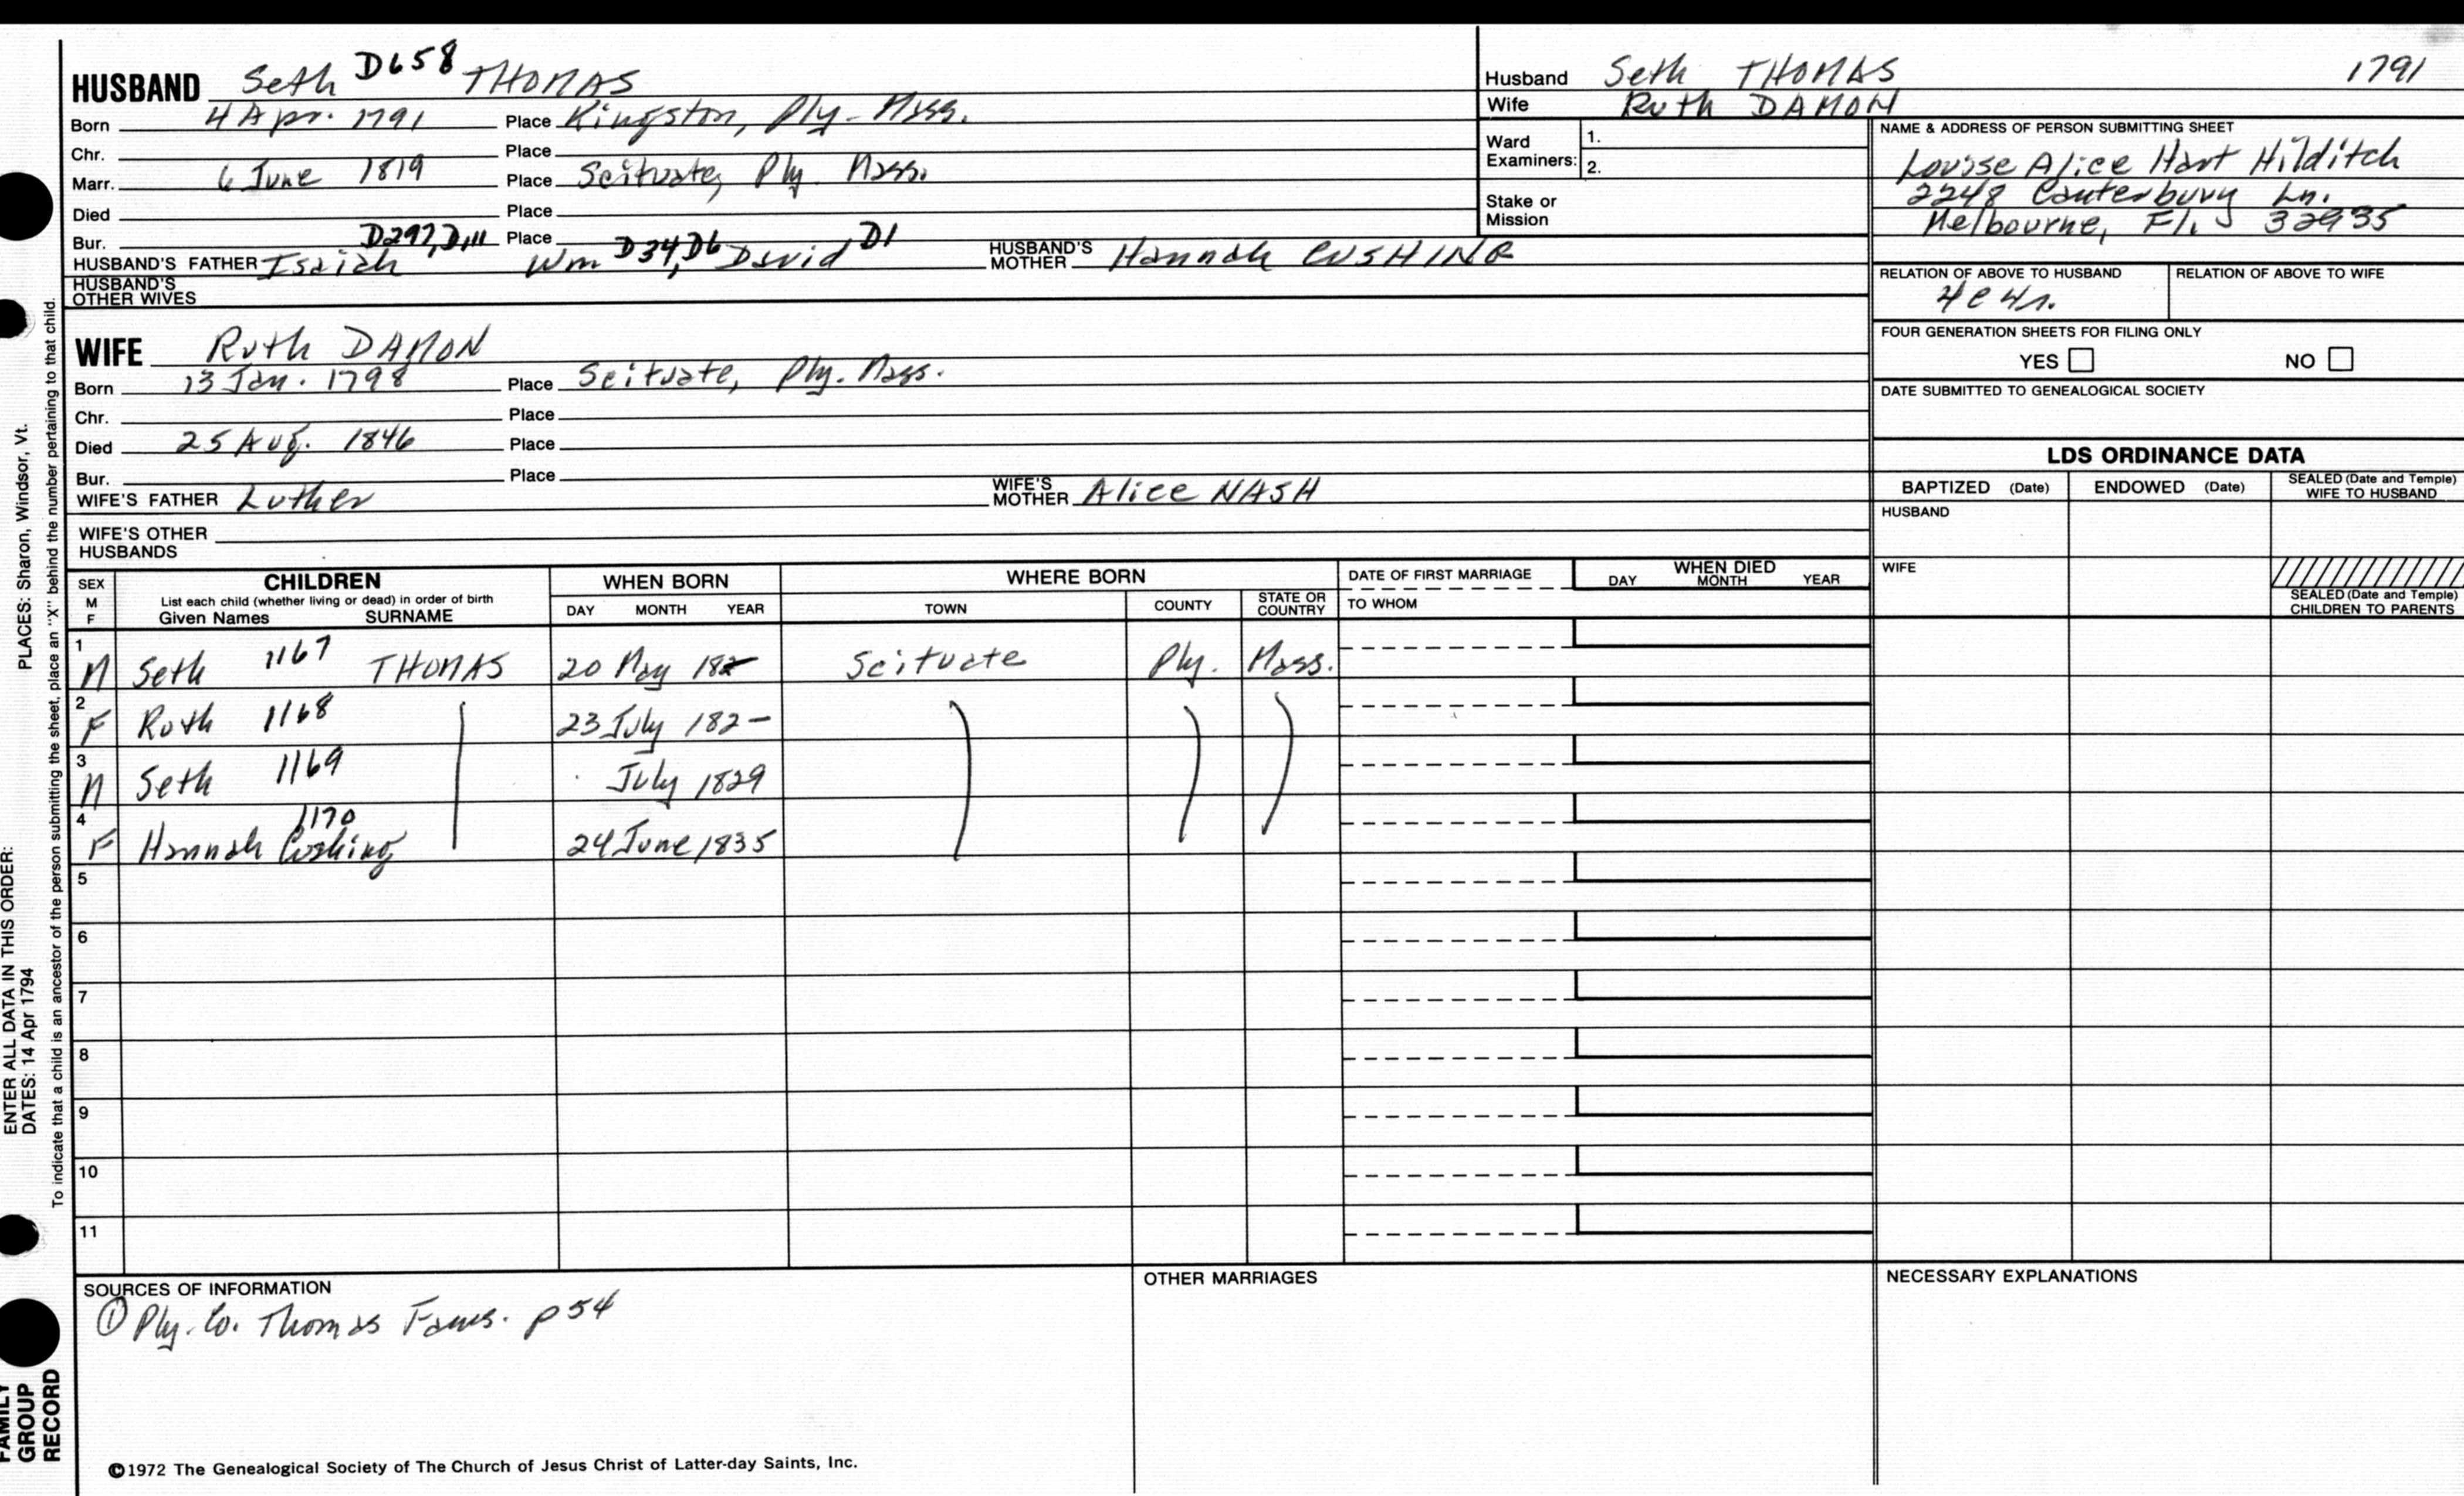 HUSBAND Seth D658 THOMAS
Born 4 Apr. 1791 Place Kingston, Ply. Mass.
Chr. Place
Marr. 6 June 1819 Place Scituate, Ply. Mass.
Died Place
Bur. Place
HUSBAND'S FATHER Isaiah D297, D111 Wm D34, D6 David D1 HUSBAND'S MOTHER Hannah CUSHING
HUSBAND'S OTHER WIVES
Husband Seth THOMAS 1791
Wife Ruth DAMON
Ward Examiners: 1.
2.
Stake or Mission
NAME & ADDRESS OF PERSON SUBMITTING SHEET
Louise Alice Hart Hilditch
2248 Canterbury Ln.
Melbourne, Fl. 32935
RELATION OF ABOVE TO HUSBAND RELATION OF ABOVE TO WIFE
4c4r.
FOUR GENERATION SHEETS FOR FILING ONLY
YES NO
DATE SUBMITTED TO GENEALOGICAL SOCIETY
WIFE Ruth DAMON
Born 13 Jan. 1798 Place Scituate, Ply. Mass.
Chr. Place
Died 25 Aug. 1846 Place
Bur. Place
WIFE'S FATHER Luther WIFE'S MOTHER Alice NASH
WIFE'S OTHER HUSBANDS
LDS ORDINANCE DATA
BAPTIZED (Date) ENDOWED (Date) SEALED (Date and Temple) WIFE TO HUSBAND
HUSBAND
WIFE
SEALED (Date and Temple) CHILDREN TO PARENTS
SEX M F CHILDREN WHEN BORN WHERE BORN DATE OF FIRST MARRIAGE WHEN DIED
List each child (whether living or dead) in order of birth
Given Names SURNAME DAY MONTH YEAR TOWN COUNTY STATE OR COUNTRY TO WHOM DAY MONTH YEAR
1 M Seth 1167 THOMAS 20 May 182- Scituate Ply. Mass.
2 F Ruth 1168 23 July 182-
3 M Seth 1169 July 1829
4 F Hannah Cushing 1170 24 June 1835
5
6
7
8
9
10
11
SOURCES OF INFORMATION
① Ply. Co. Thomas Fams. p 54
OTHER MARRIAGES
NECESSARY EXPLANATIONS
©1972 The Genealogical Society of The Church of Jesus Christ of Latter-day Saints, Inc.
FAMILY GROUP RECORD
ENTER ALL DATA IN THIS ORDER:
DATES: 14 Apr 1794 PLACES: Sharon, Windsor, Vt.
To indicate that a child is an ancestor of the person submitting the sheet, place an "X" behind the number pertaining to that child.